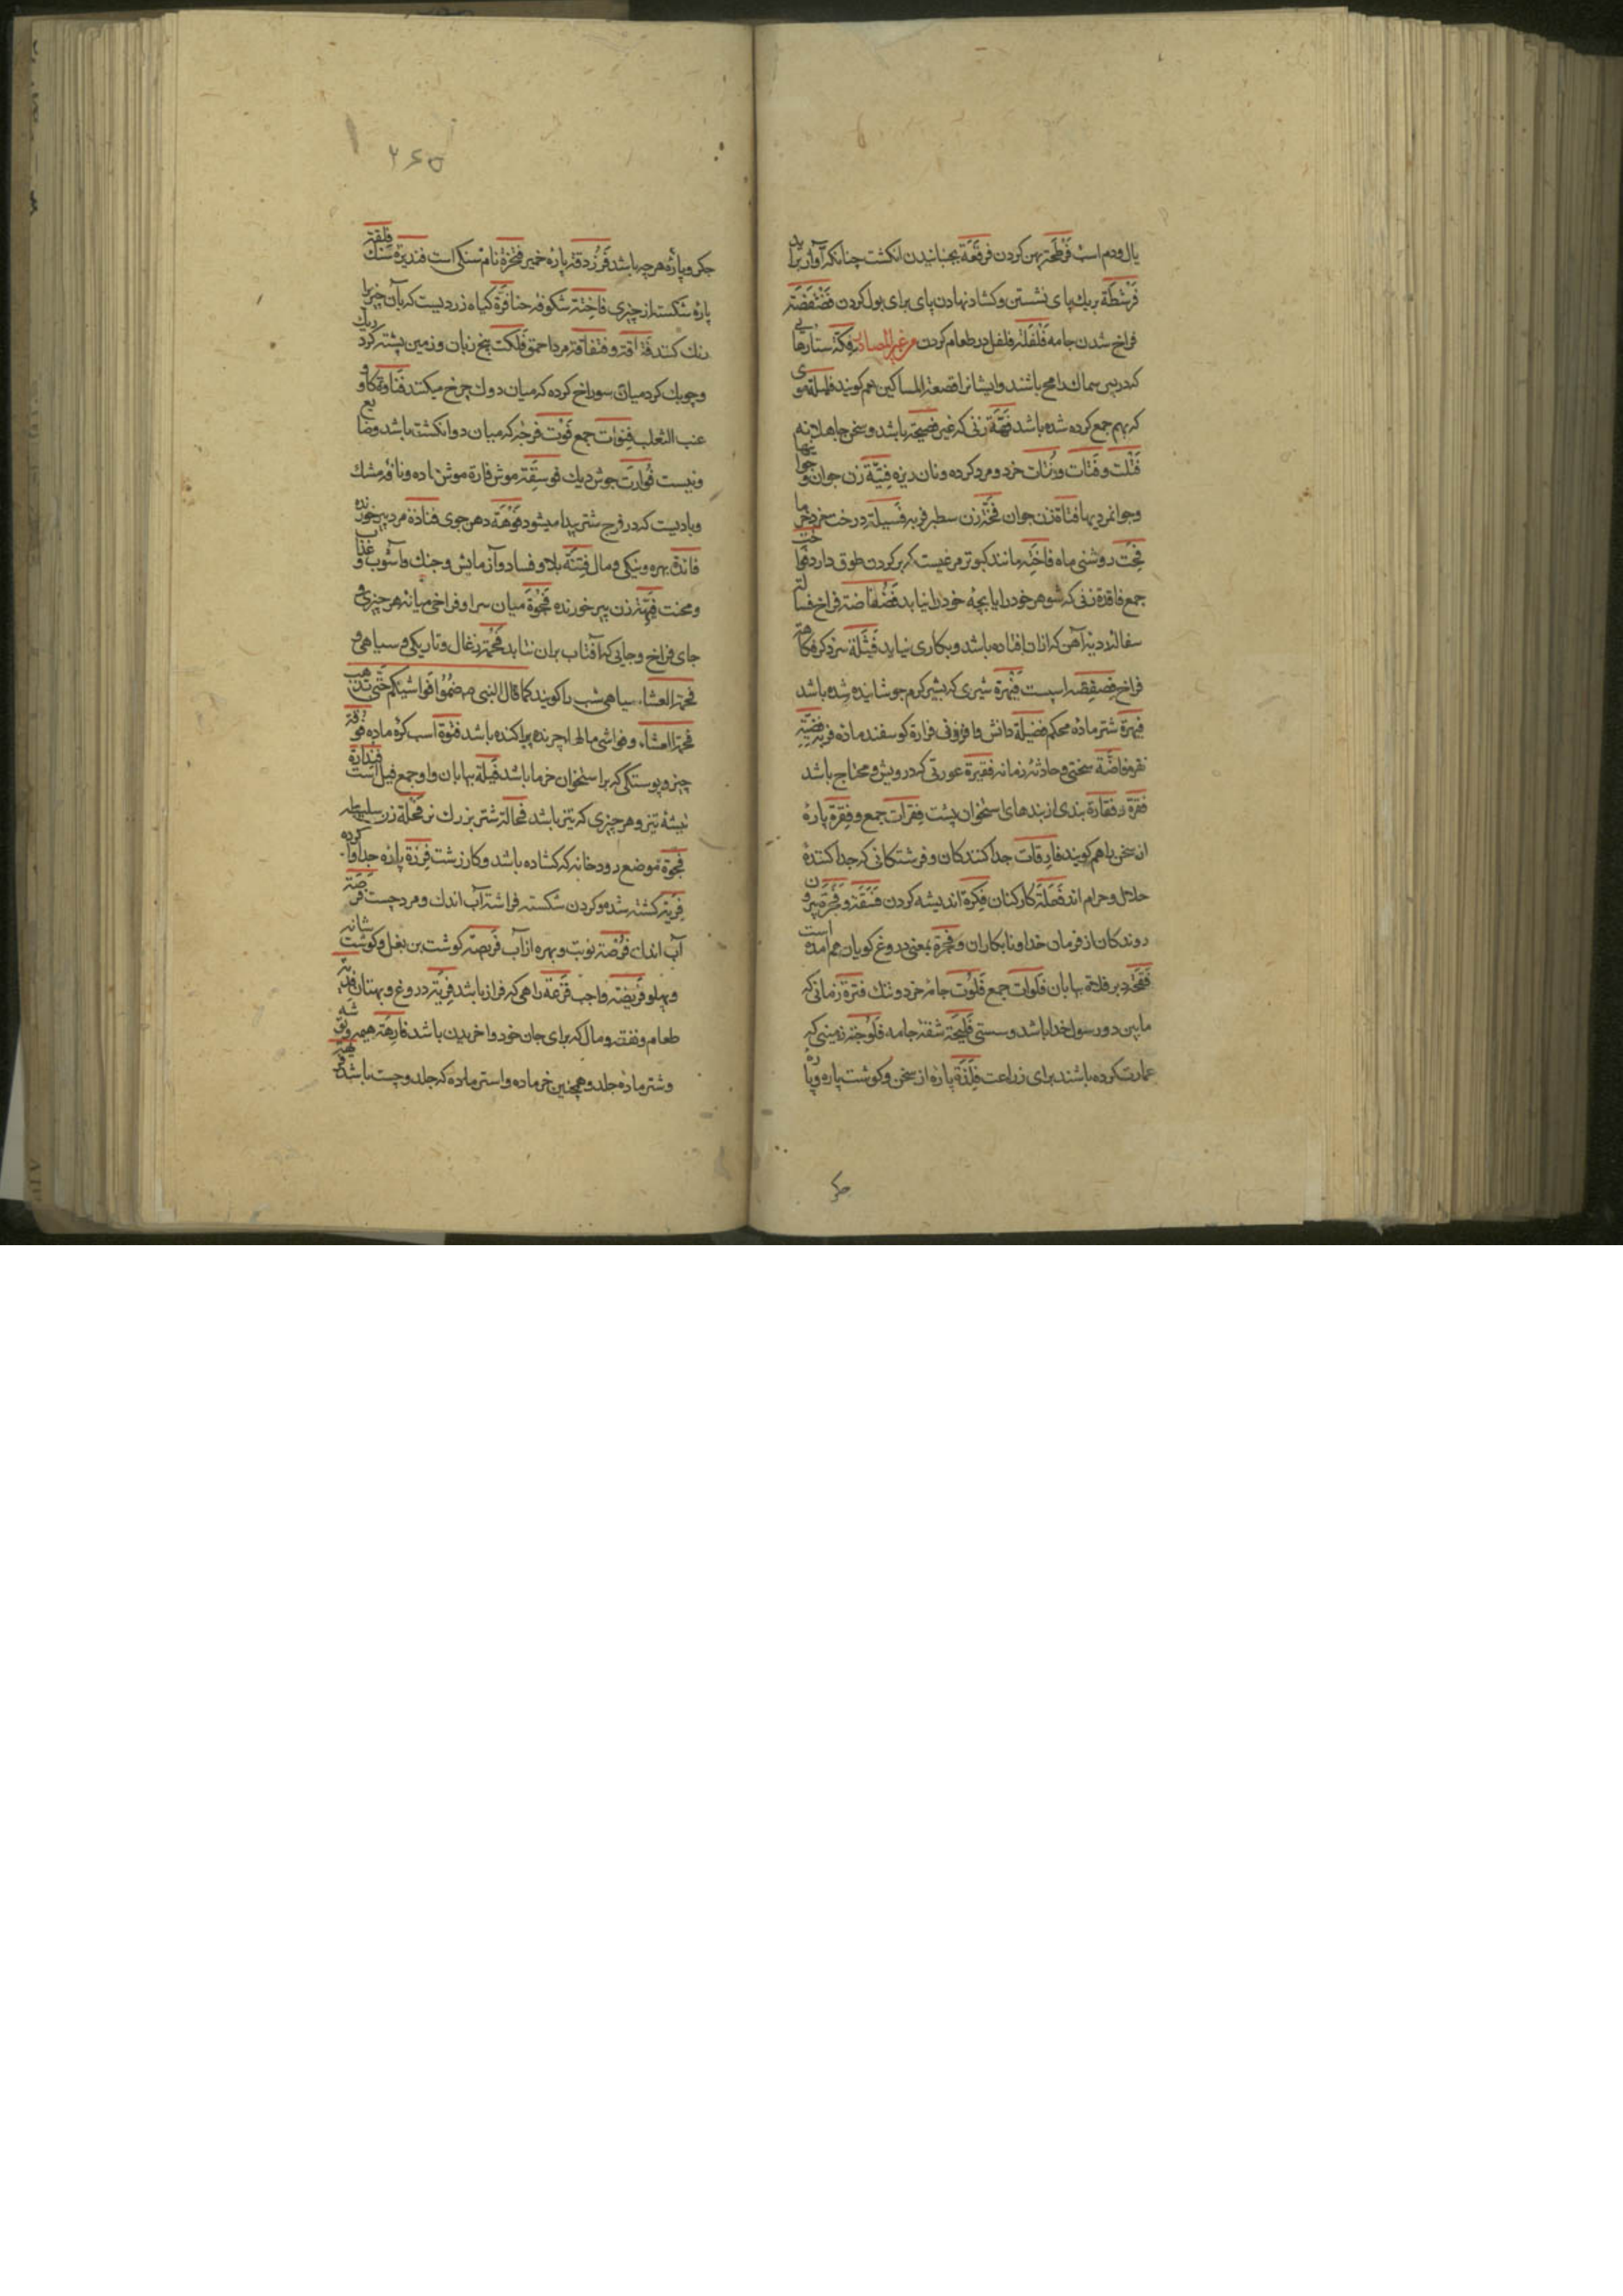 یال ودم اسب فَرْطَحَة پهن کردن فرقَعَة بجنبانیدن انکشت چنانکه آواز براید
فَرْشَطَة بر یك پای نشستن و کشاد نهادن پای برای بول کردن فَضْفَضَة
فراخ شدن جامه فَلْفَلَة فلفل در طعام کردن من غیر المصادر فکة ستارهایی
که در پس سماك رامح باشند و ایشانرا قصعة المساکین هم کویند فلیلة موی
که بهم جمع کرده شده باشد فَهَّة زنی که غیر فصیحه باشد و سخن جاهلانه
فَتَّت و فتات ورُتات خرد و مرد کرده و نان ریزه فِتیَّة زن جوان و جوانیها
و جوانمردیها فتاة زن جوان فَخَّة زن سطبر فربه فَسیلة درخت خرد خرما
فَخْت روشنی ماه فاخِتَه مانند کبوتر مرغیست که بر کردن طوق دارد
جمع فاقدة زنی که شوهر خود را یا بچه خود را نیابد فَضْفاضة فراخ فسالة
سفاله و دیزه آهن که ازان افتاده باشد و بکاری نیاید فَیشَلة سر ذکر فکاهة
فراخ فِصفِصه اسپست فَهیرة شیری که بشیر کرم جوشانیده شده باشد
شتر ماده محکم فضیلة دانش و افزونی فرارة کوسفند ماده فربه فضیة
نقره فاضَّة سختی و حادثه زمانه فقیرة عورتی که درویش و محتاج باشد
فقرة و فقارة بندی از بندهای استخوان پشت فِقرات جمع و فِقرة پارهٔ
از سخن با هم کویند فارقات جدا کنندکان و فرشتکانی که جدا کنندهٔ
حلال و حرام اند فَعَلَة کارکنان فِکرة اندیشه کردن فَسَقَة و فَجَرَة بیرون
روندکان از فرمان خدا و نابکاران و فجرة بمعنی دروغ کویان هم آمده است
فقحة دبر فلاة بیابان فلوات جمع فَلُّوت جامهٔ خرد و تنك فترة زمانی که
مابین دو رسول خدا باشد و سستی فَلیحة شقهٔ جامه فَلُّوجة زمینی که
عمارت کرده باشند برای زراعت فِلْذَة پاره از سخن و کوشت پاره و پارهٔ
جکر
۲۶۵
جکر و پارهٔ هر چه باشد فَرَزْدَقَة پارهٔ خمیر نام سنکی است فندیرة سنك فلقة
پارهٔ شکسته از چیزی فاخِتَة شکوفه حنا فُوَّة کیاه زردیست که بآن چیزها
رنك کنند و فقفاقة مرد احمق فَلکت بیخ زبان و زمین پشته کرد
و چوبك کرد میان سوراخ کرده که میان دوك چرخ میکنند فَنا و کاو
عنب الثعلب فنوات جمع فَوْت فرجه که میان دو انکشت باشد وضایع
ونیست فُوارَت جوش دیك فویسِقَة موش فارة موش ماده و نافهٔ مشك
و بادیست که در فرج شتر پیدا میشود فُوَّهَة دهن جوی فتاذة مرد پیر خورنده
فائدة بهره و نیکی و مال فِتنَة بلا و فساد و آزمایش و جنك و آشوب و عذاب
و محنت زن پیر خورنده فَجْوَة میان سرا و فراخی میانهٔ هر چیزی و
جای فراخ و جایی که آفتاب بران نتابد فَحمة زغال و تاریکی و سیاهی و
فحمة العشاء سیاهی شب را کویند کما قال النبی ص ضُمّوا فَواشیَکم حتّی تذهب
فحمة العشاء و فواشی مالها چرنده پراکنده باشد فَلوة اسب کرهٔ ماده
چیز و پوستکی که بر استخوان خرما باشد فَیلة بیابان واو جمع فیل است
تیشهٔ تیز و هر چیزی که تیز باشد فحالة شتر بزرك نر فَحْلة زن سلیطه
فجوة موضع رودخانه که کشاده باشد و کار زشت فِرزة پارهٔ جدا واکرده
فِریة کشته شدن و کردن شکسته فراشة آب اندك و مرد چست فرصة
آب اندك فُرْضة نوبت و بهره از آب فریصة کوشت بن بغل و کوشت شانه
و پهلو فریضة واجب فَرْعة راهی که فراز باشد فِریة دروغ و بهتان فدیة
طعام و نفقه و مال که برای جان خود واخریدن باشد فارِهة همیشه
و شتر ماده جلد و همچنین خر ماده و استر ماده که جلد و چست باشد